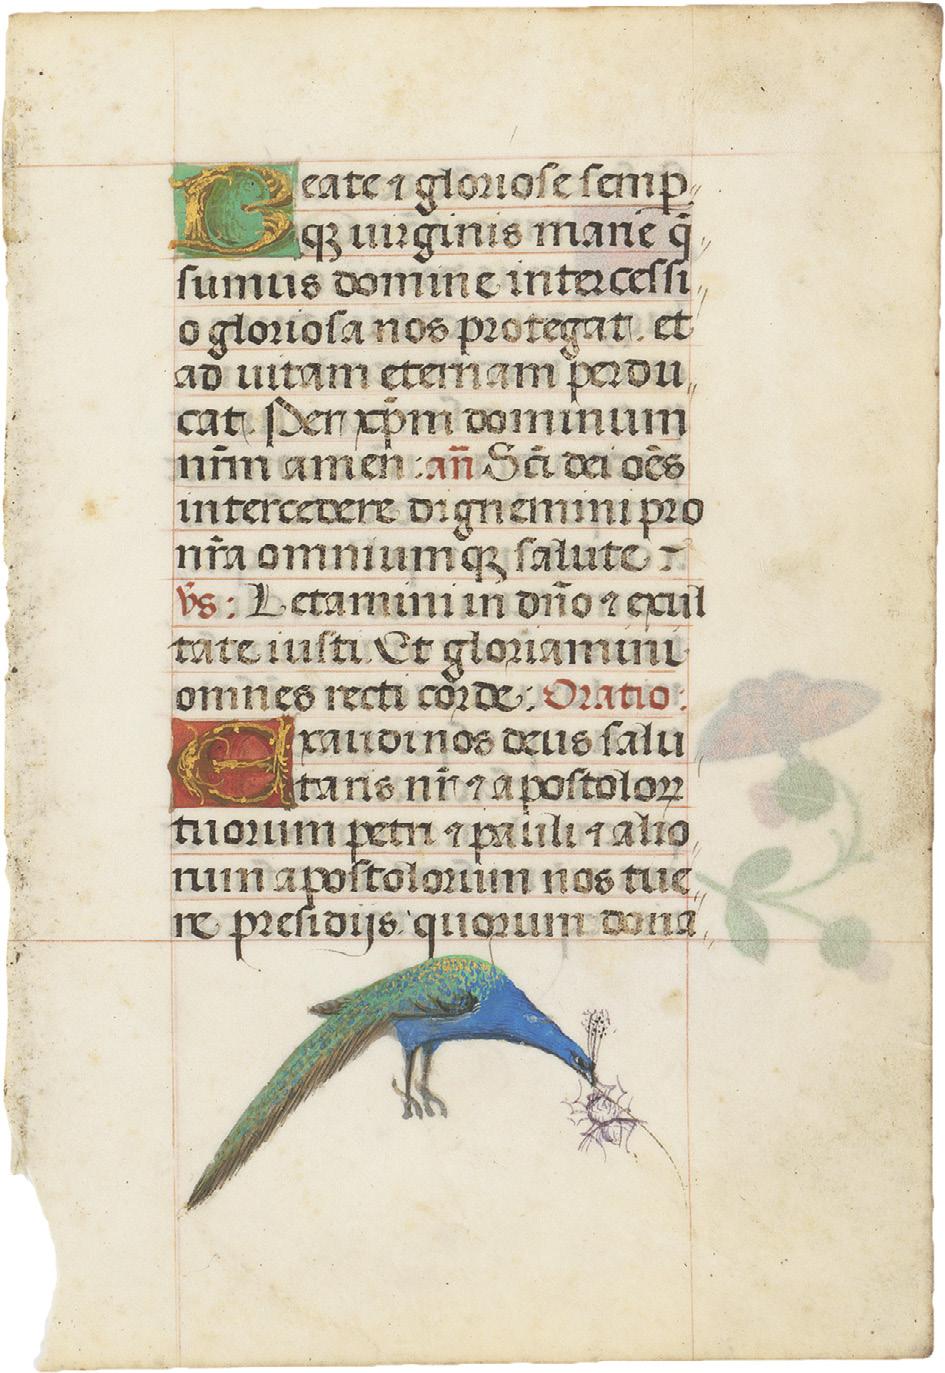 Beate ⁊ gloriose semp
qꝫ uirginis marie q̃
sumus domine intercessi
o gloriosa nos protegat. et
ad uitam eternam perdu
cat. Per xp̃m dominum
nr̃m amen: an̄ Sc̄i dei oēs
intercedere dignemini pro
nr̃a omniumqꝫ salute
v̄s: Letamini in dn̄o ⁊ exul
tate iusti. Et gloriamini
omnes recti corde: Oratio:
Exaudi nos deus salu
taris nr̄ ⁊ apostoloꝝ
tuorum petri ⁊ pauli ⁊ alio
rum apostolorum nos tue
re presidijs quorum dona